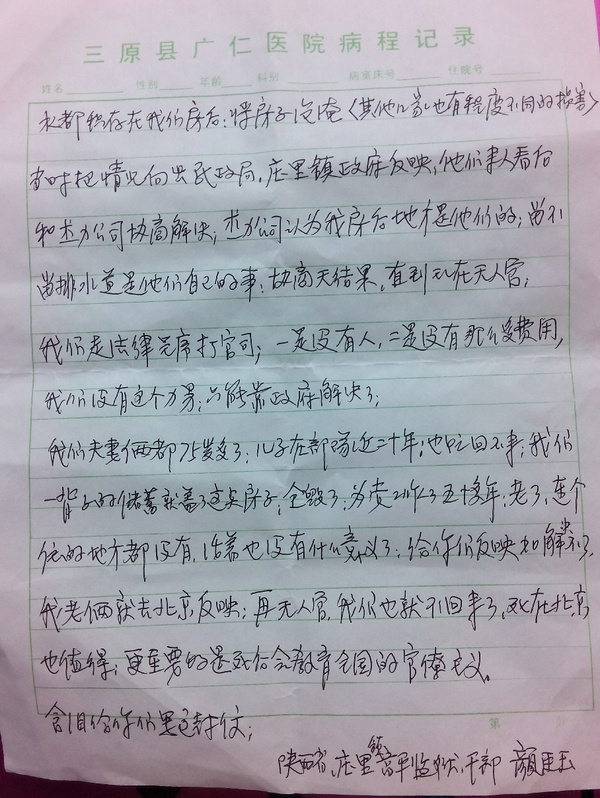 三原县广仁医院病程记录
姓名 性别 年龄 科别 病室床号 住院号
水都积存在我们房后;将房子泡淹〈其他几家也有程度不同的损害〉
当时把情况向县民政局,庄里镇政府反映,他们来人看后
和公司协商解决;公司认为我房后地才是他们的;留不
留排水道是他们自己的事;协商无结果,直到现在无人管;
我们走法律程序打官司;一是没有人,二是没有那么多费用,
我们没有这个力量;只能靠政府解决了;
我们夫妻俩都75岁多了;儿子在部队近二十年;也回不来;我们
一辈子的储蓄就盖了这点房子;全毁了;为党工作了五十多年;老了,连个
住的地方都没有,活着也没有什么意义了;给你们反映如解决不了,
我老俩就去北京反映;再无人管,我们也就不回来了,死在北京
也值得;更重要的是死后会教育全国的官僚主义。
含泪给你们写这封信;
第
陕西省,庄里镇富平监狱,干部 颜